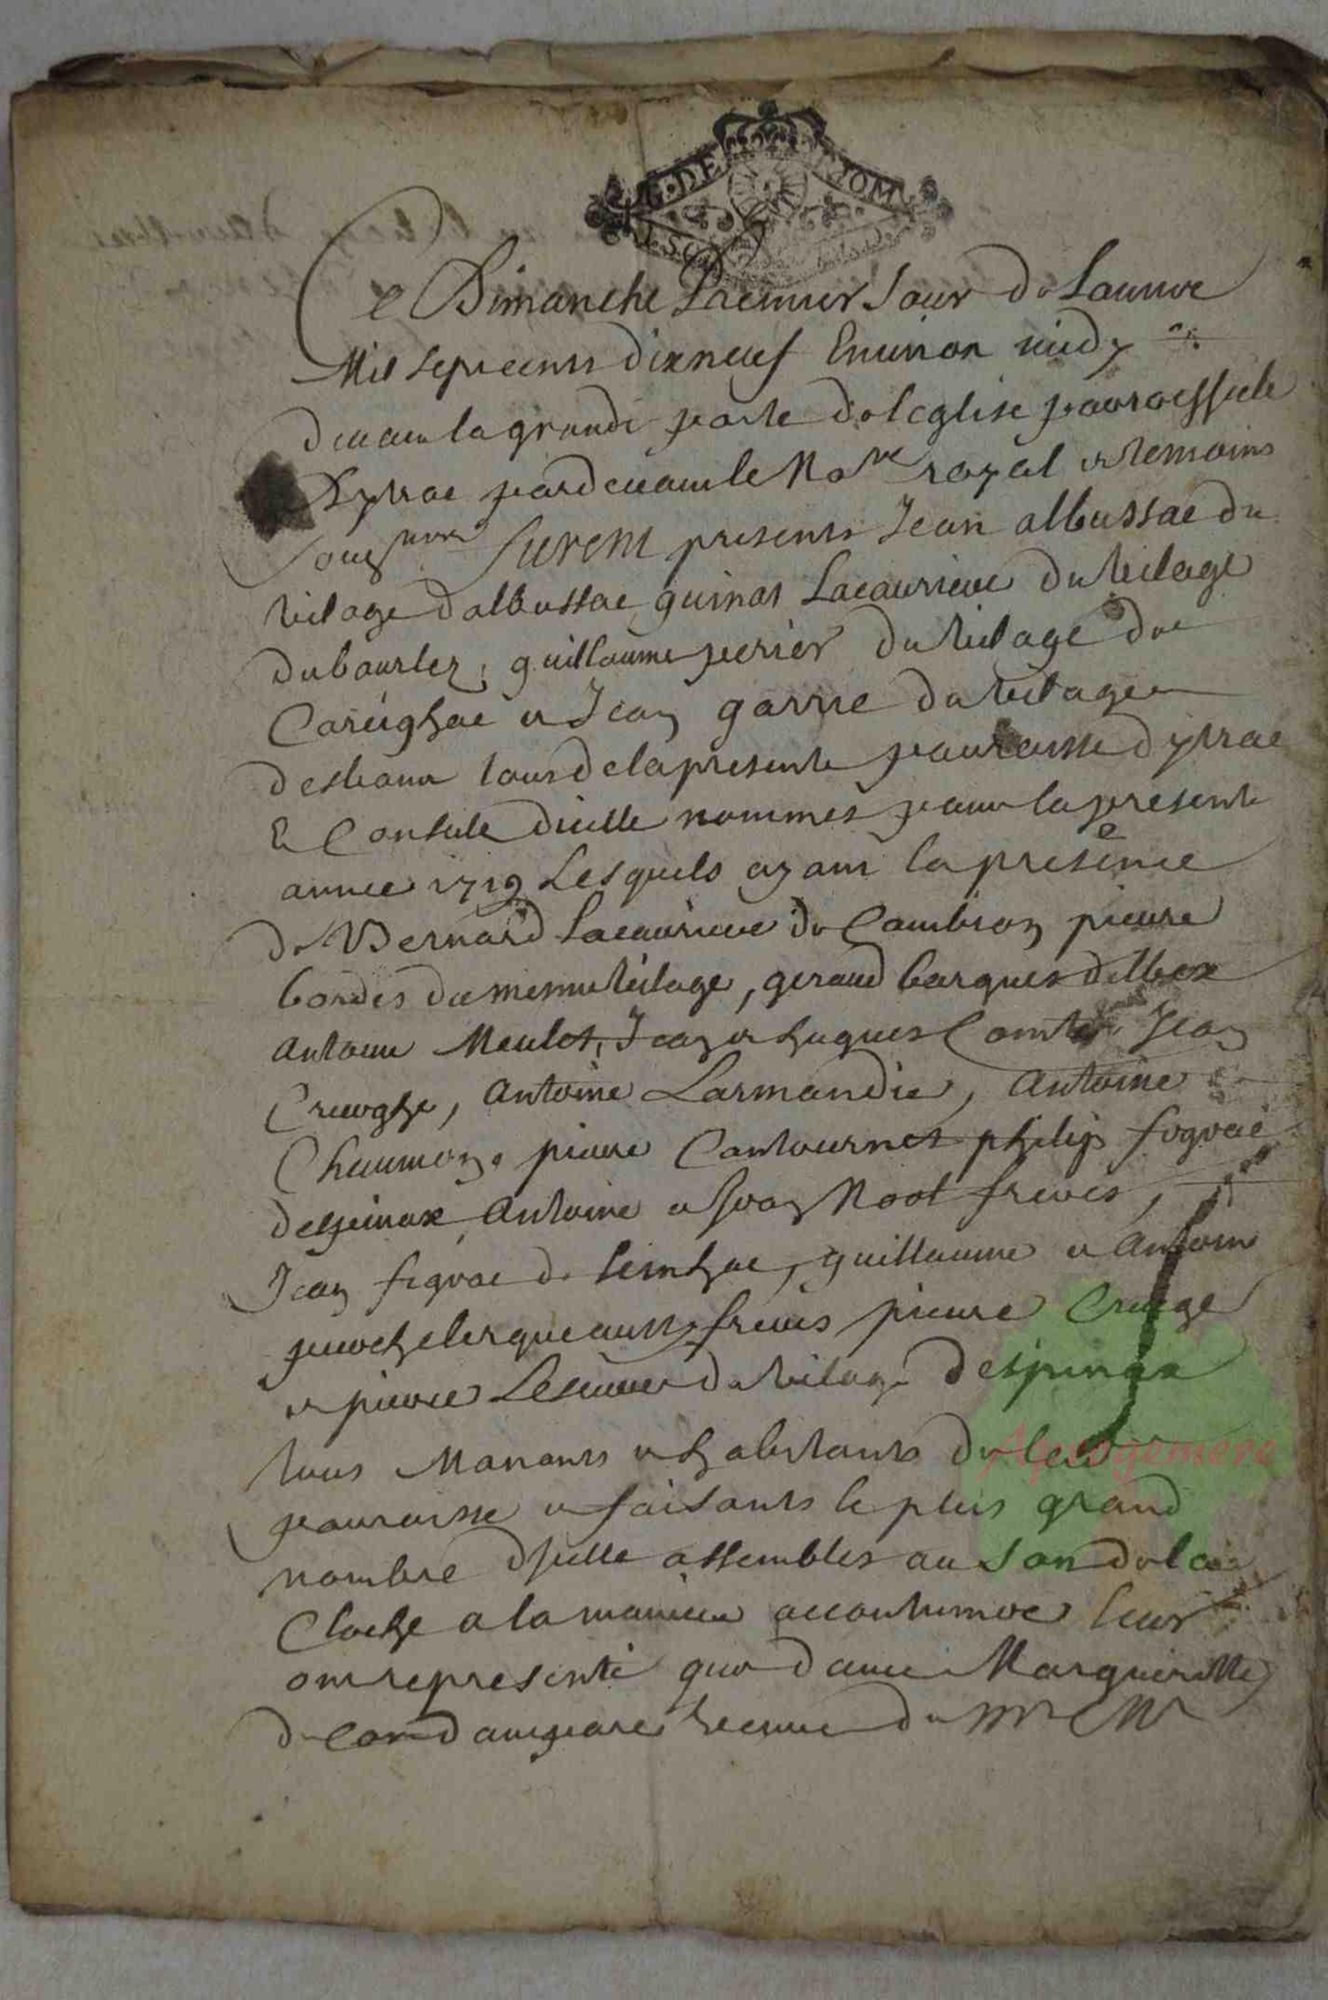 G. DE RIOM
Ce Dimanche premier Jour de Lannee
Mil sept cents dixneuf Environ midy
devant la grande porte de leglise parroissiele
dytrac pardevant le No.re royal et temoins
sousignes furent presents Jean albussac du
vilage dalbussac, guinot Lacarriere du vilage
du bourlez, guillaume perier du vilage de
Careighac et Jean garrie du vilage
desbans tous de la presente parroisse dytrac
et Consuls dicelle nommes pour la presente
annee 1719 Lesquels ayant la presence
de Bernard Lacarriere de Cambion pierre
bordes du meme vilage, geraud barques delbex
antoine Meulet, Jean et hugues Comte Jean
Crueghe, antoine Larmandie, antoine
Chaumon, pierre Cantournet philip figeac
despinax, antoine et Jean Noot freres,
Jean figeac de leinhac, guillaume et antoine
aussy freres pierre Cruege
et pierre du vilage despinax
tous Manants et habitants de lad.
parroisse et faisants le plus grand
nombre dicelle assembles au son de la
Cloche a la maniere accoutumee leur
ont represente que dame Margueritte
de veuve de Mr
Apropgemere